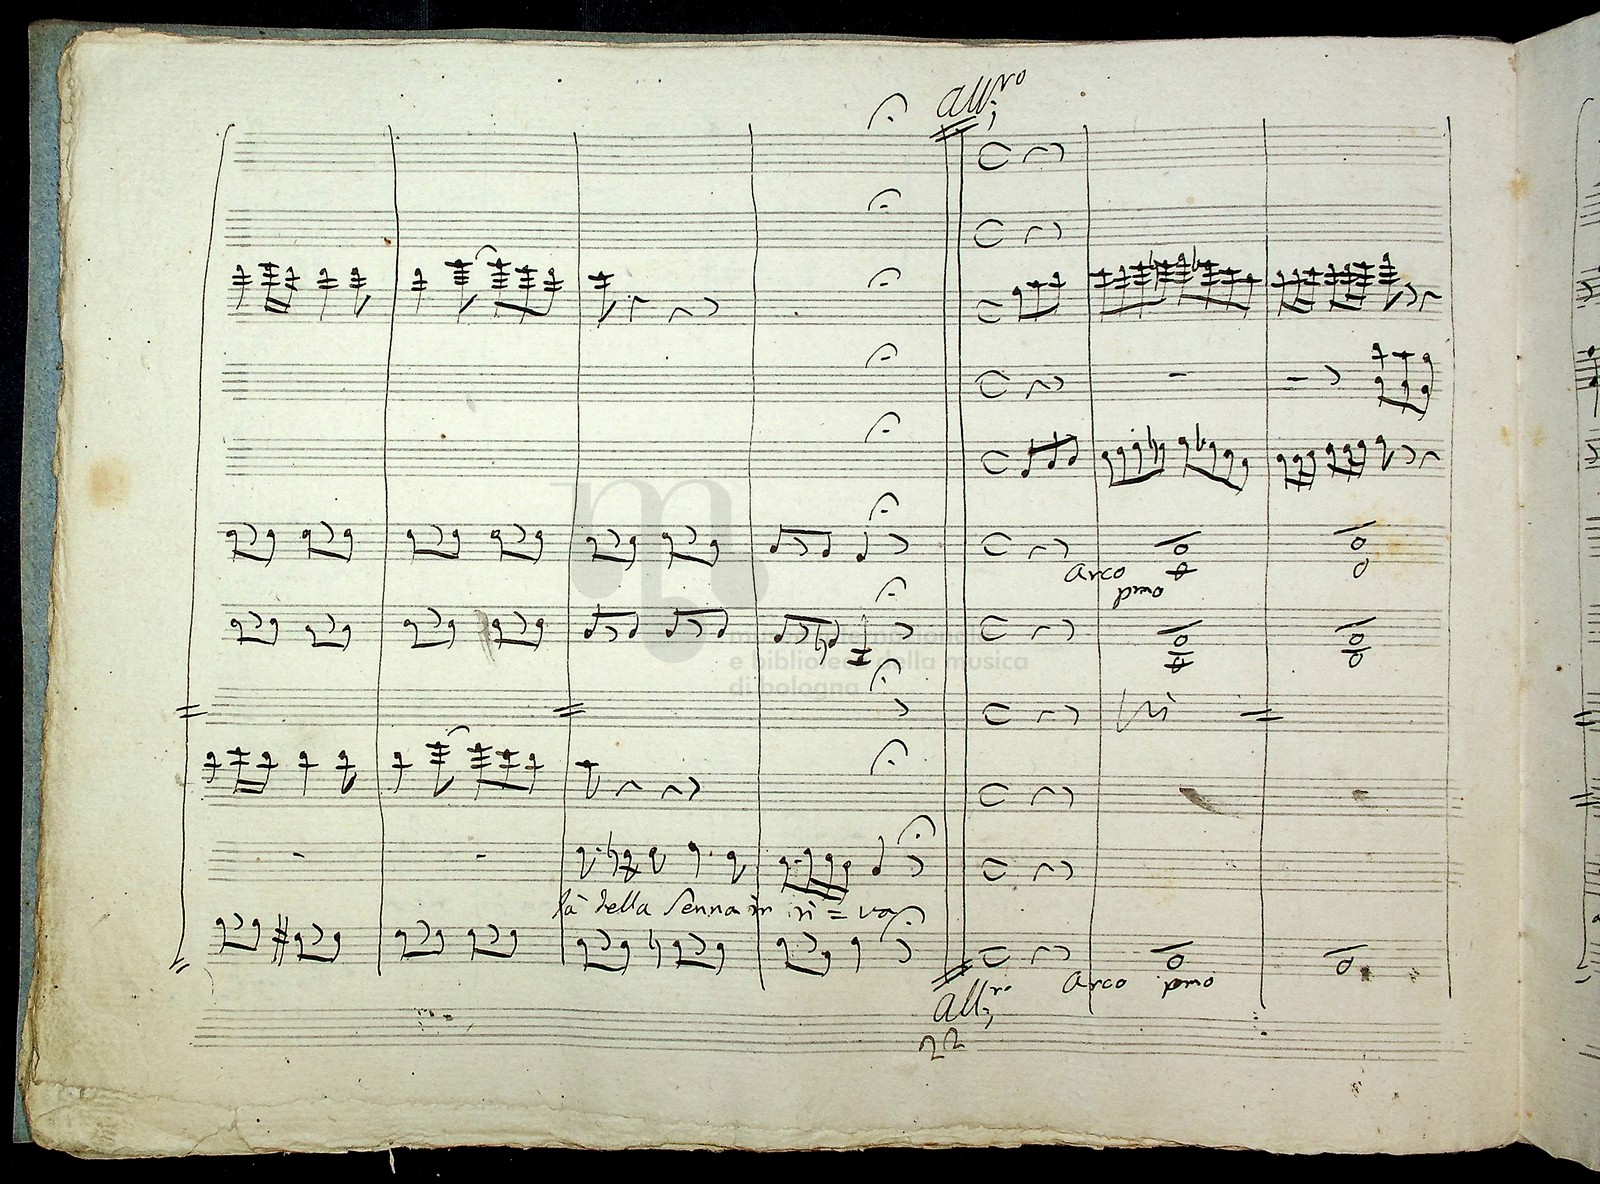 All:ro
Arco
pmo
museo internazionale
e biblioteca della musica
di bologna
là della Senna in ri = va
Arco pmo
All:ro
22